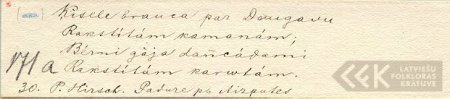 Kisele brauca par Daugavu
Rakstītām kamanām;
Bērni gāja dancādami
171a Rakstītām karotām.
30. P. Hirsch. Padure pē Aizputes
LATVIEŠU
FOLKLORAS
KRĀTUVE